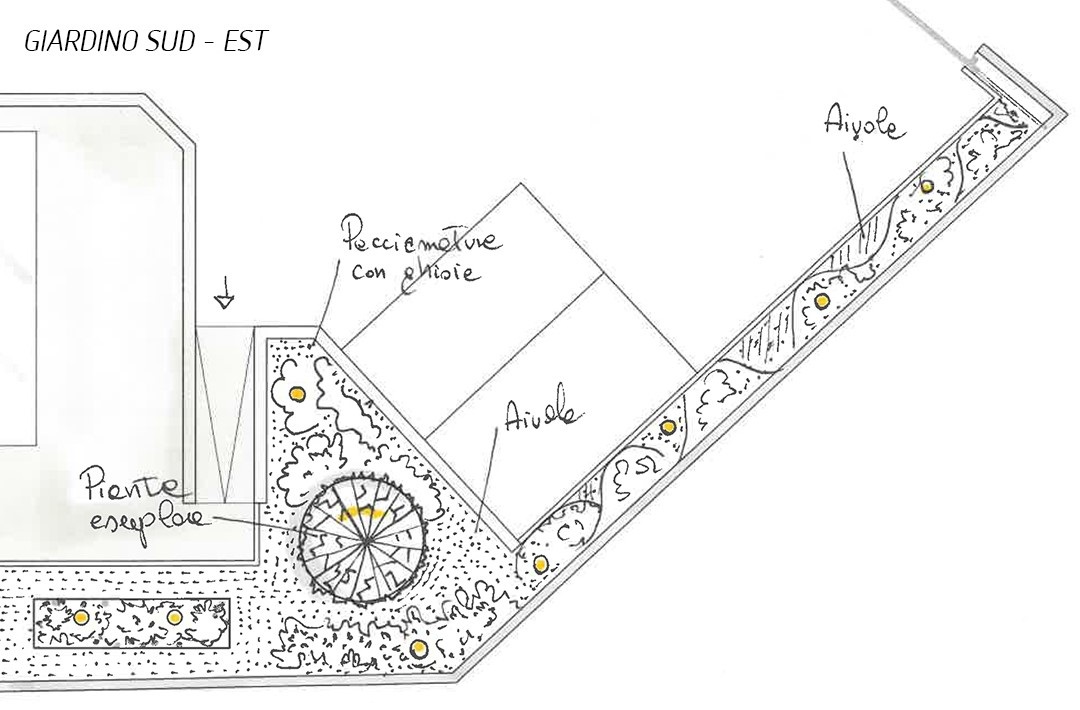 GIARDINO SUD - EST
Aiuole
Pacciamatura
con ghiaie
Aiuole
Pianta
esemplare